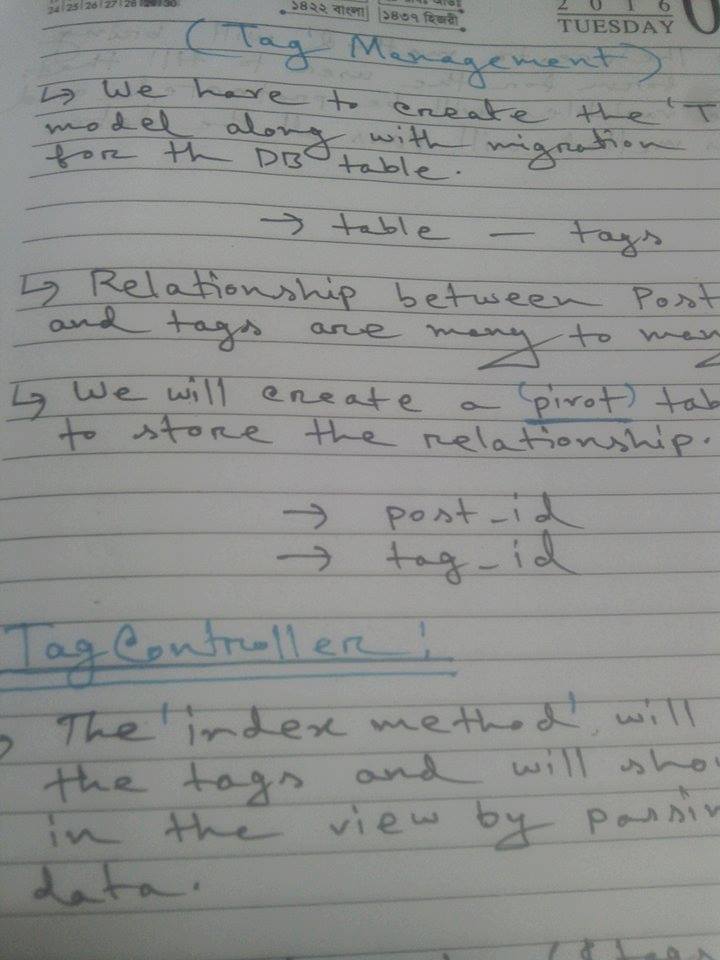 24|25|26|27|28|29|30
১৪২২ বাংলা
১৪৩৭ হিজরী
2 0 1 6
TUESDAY
(Tag Management)
↳ We have to create the 'T
model along with migration
for th DB table.
→ table — tags
↳ Relationship between Post
and tags are many to man
↳ We will create a (pivot) tab
to store the relationship.
→ post_id
→ tag_id
TagController:
The 'index method' will
the tags and will sho
in the view by passin
data.